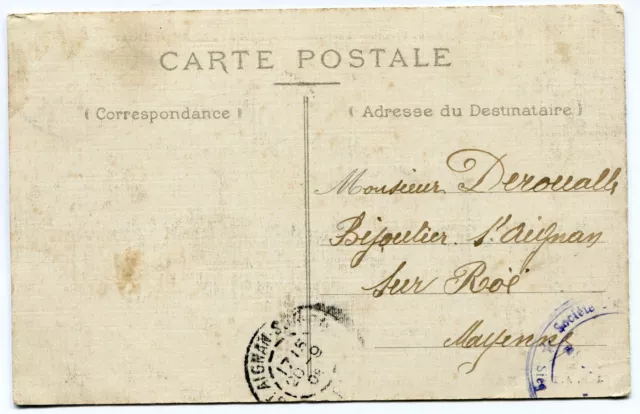 CARTE POSTALE
( Correspondance )
( Adresse du Destinataire )
Monsieur Deroualle
Bijoutier St Aignan
sur Roë
Mayenne
AIGNAN-S
Société
Sieg